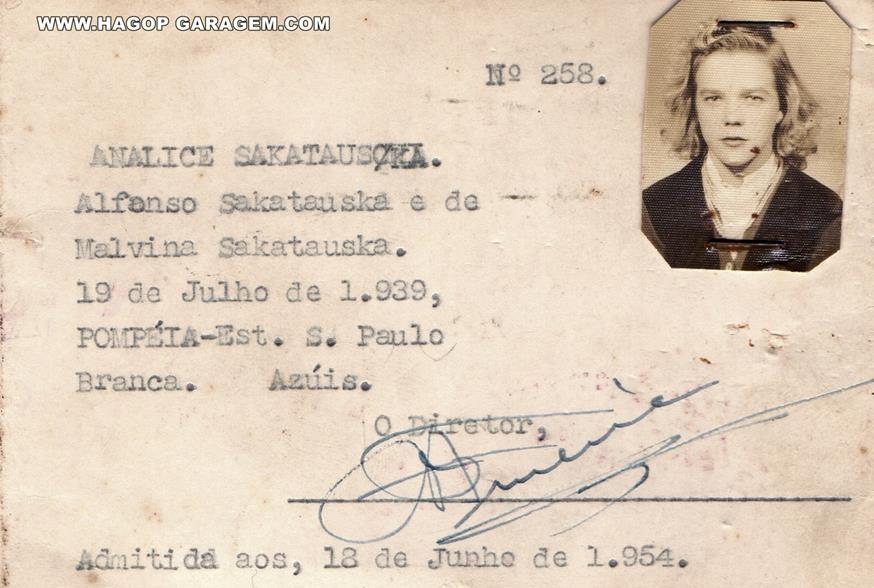 WWW.HAGOP GARAGEM.COM
Nº 258.
ANALICE SAKATAUSKA.
Alfonso Sakatauska e de
Malvina Sakatauska.
19 de Julho de 1.939,
POMPÉIA-Est. S. Paulo
Branca. Azúis.
O Diretor,
Admitida aos, 18 de Junho de 1.954.